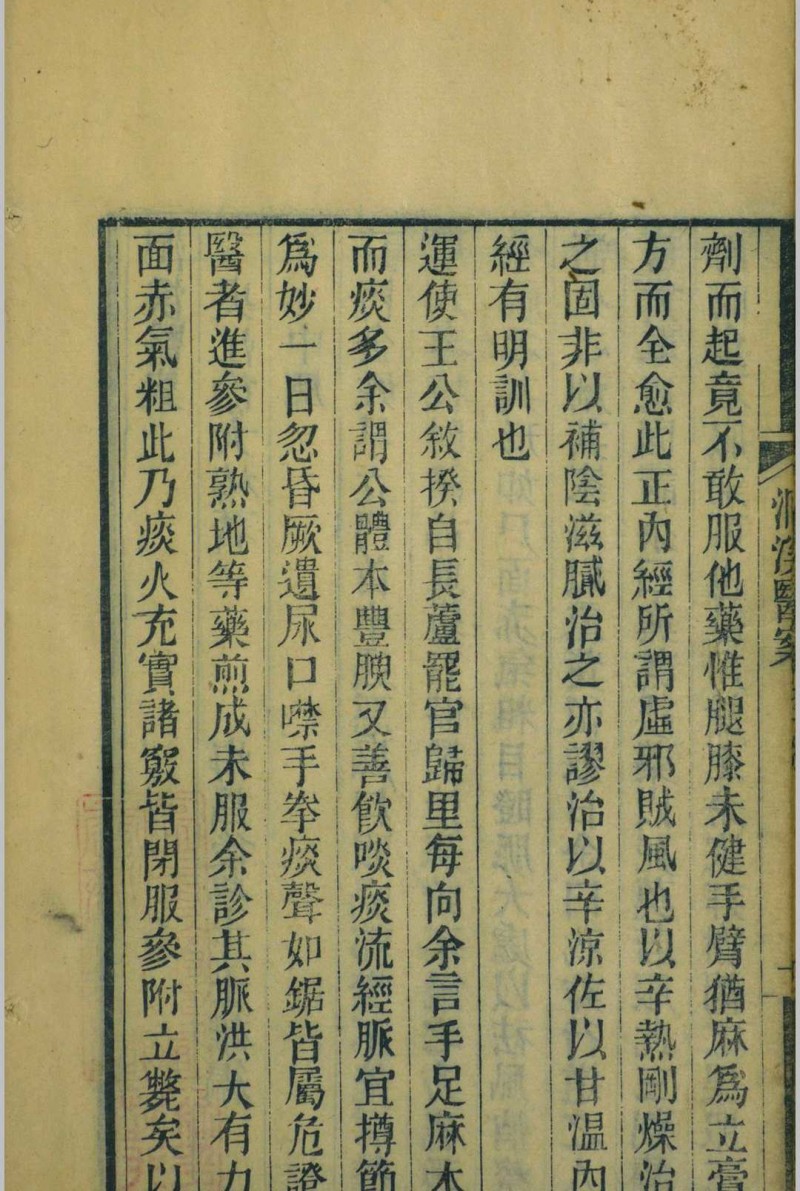 洄溪醫案
劑而起竟不敢服他藥惟腿膝未健手臂猶麻爲立膏
方而全愈此正內經所謂虛邪賊風也以辛熱剛燥治
之固非以補陰滋膩治之亦謬治以辛涼佐以甘溫內
經有明訓也
運使王公敘揆自長蘆罷官歸里每向余言手足麻木
而痰多余謂公體本豐腴又善飮啖痰流經脈宜撙節
爲妙一日忽昏厥遺尿口噤手拳痰聲如鋸皆屬危證
醫者進參附熟地等藥煎成未服余診其脈洪大有力
面赤氣粗此乃痰火充實諸竅皆閉服參附立斃矣以